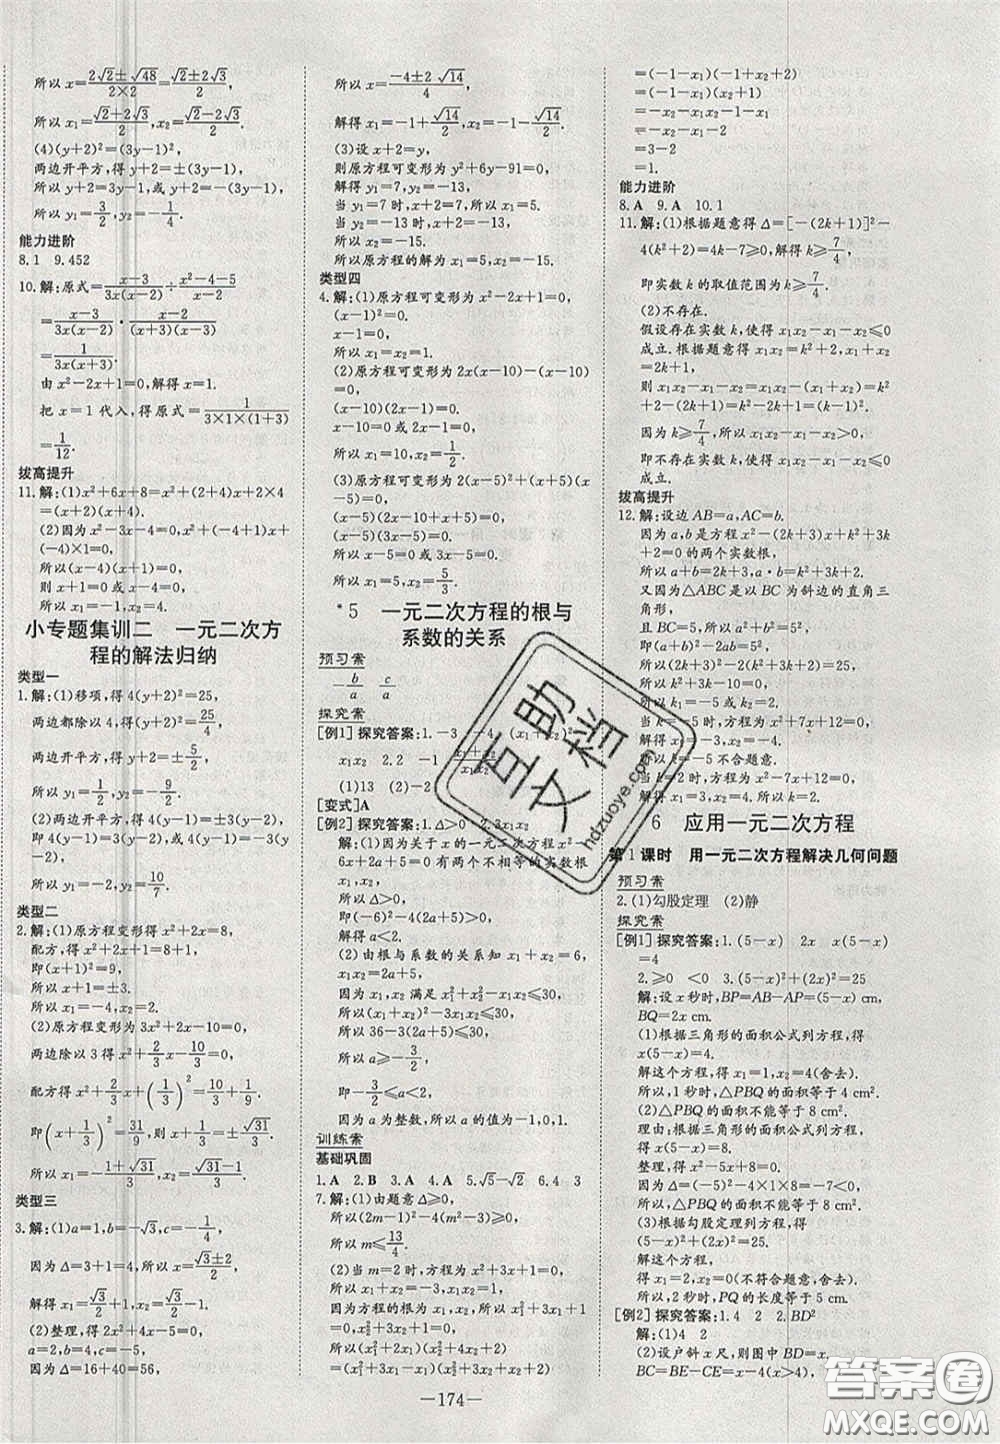 所以 x=(2√2±√48)/(2×2)=(√2±2√3)/2.
所以 x₁=(√2+2√3)/2,x₂=(√2-2√3)/2.
(4)(y+2)²=(3y-1)²,
两边开平方,得 y+2=±(3y-1),
所以 y+2=3y-1 或 y+2=-(3y-1),
所以 y₁=3/2,y₂=-1/4.
能力进阶
8.1 9.452
10.解:原式=(x-3)/(3x(x-2))÷(x²-4-5)/(x-2)
=(x-3)/(3x(x-2))·(x-2)/((x+3)(x-3))
=1/(3x(x+3)).
由 x²-2x+1=0,解得 x=1.
把 x=1 代入,得原式=1/(3×1×(1+3))
=1/12.
拔高提升
11.解:(1)x²+6x+8=x²+(2+4)x+2×4
=(x+2)(x+4).
(2)因为 x²-3x-4=0,x²+(-4+1)x+
(-4)×1=0,
所以(x-4)(x+1)=0,
则 x+1=0 或 x-4=0,
所以 x₁=-1,x₂=4.
小专题集训二 一元二次方
程的解法归纳
类型一
1.解:(1)移项,得 4(y+2)²=25,
两边都除以 4,得(y+2)²=25/4,
两边开方,得 y+2=±5/2,
所以 y₁=1/2,y₂=-9/2.
(2)移项,得 4(2y-5)²=9(3y-1)²,
两边开平方,得 2(2y-5)=±3(3y-1),
即 4y-10=3(3y-1)或 4y-10=-3(3y-1),
所以 y₁=-7/5,y₂=1.
类型二
2.解:(1)原方程变形得 x²+2x=8,
配方,得 x²+2x+1=8+1,
即(x+1)²=9,
所以 x+1=±3.
所以 x₁=2,x₂=-4.
(2)原方程变形为 3x²+2x=10,
两边除以 3 得 x²+2/3x=10/3,
配方得 x²+2/3x+(1/3)²=10/3+1/9,
即(x+1/3)²=31/9,则 x+1/3=±√31/3.
所以 x₁=-(1+√31)/3,x₂=(√31-1)/3.
类型三
3.解:(1)a=1,b=-√3,c=-1/4,
因为 Δ=3+1=4,所以 x=(√3±2)/2,
解得 x₁=√3/2+1,x₂=√3/2-1.
(2)整理,得 2x²+4x-5=0,
a=2,b=4,c=-5,
因为 Δ=16+40=56,
所以 x=(-4±2√14)/4,
解得 x₁=-1+√14/2,x₂=-1-√14/2.
(3)设 x+2=y,
则原方程可变形为 y²+6y-91=0,
解得 y₁=7,y₂=-13,
当 y₁=7 时,x+2=7,所以 x=5.
当 y₂=-13 时,x+2=-13,
所以 x=-15.
所以原方程的解为 x₁=5,x₂=-15.
类型四
4.解:(1)原方程可变形为 x²-2x+1=0,
(x-1)²=0.
所以 x₁=x₂=1.
(2)原方程可变形为 2x(x-10)-(x-10)=0,
(x-10)(2x-1)=0.
x-10=0 或 2x-1=0.
所以 x₁=10,x₂=1/2.
(3)原方程可变形为 2(x-5)²+x(x-5)=0,
(x-5)(2x-10+x)=0,
(x-5)(3x-10)=0.
所以 x-5=0 或 3x-5=0.
所以 x₁=5,x₂=5/3.
*5 一元二次方程的根与
系数的关系
预习案
-b/a c/a
探究案
[例1]探究答案:1.-3 -4
x₁x₂ 2.2 -1
(1)13 (2)-2
[变式]A
[例2]探究答案:1.Δ>0
解:(1)因为关于 x 的一元二次方程 x²-
6x+(2a+5)=0 有两个不相等的实数根,
所以 Δ>0,
即(-6)²-4(2a+5)>0,
解得 a<2.
(2)由根与系数的关系知 x₁+x₂=6,
x₁x₂=2a+5,
因为 x₁,x₂ 满足 x₁²+x₂²-x₁x₂≤30,
所以(x₁+x₂)²-3x₁x₂≤30,
所以 36-3(2a+5)≤30,
所以 a≥-3/2,
即-3/2≤a<2,
因为 a 为整数,所以 a 的值为-1,0,1.
训练案
基础巩固
1.A 2.B 3.A 4.A 5.√5-√2 6.4 3
7.解:(1)由题意 Δ≥0,
所以(2m-1)²-4(m²-3)≥0,
所以 m≤13/4.
(2)当 m=2 时,方程为 x²+3x+1=0,
所以 x₁+x₂=-3,x₁x₂=1,
因为方程的根为 x₁,x₂,所以 x₁²+3x₁+1=
0,x₂²+3x₂+1=0,
所以(x₁²+2x₁)(x₂²+4x₂+2)
=(x₁²+2x₁+x₁-x₁)(x₂²+3x₂+x₂+2)
=(-1-x₁)(-1+x₂+2)
=(-1-x₁)(x₂+1)
=-x₂-x₁x₂-1-x₁
=-x₂-x₁-2
=3-2
=1.
能力进阶
8.A 9.A 10.1
11.解:(1)根据题意得 Δ=[-(2k+1)]²-
4(k²+2)=4k-7≥0,解得 k≥7/4,
即实数 k 的取值范围为 k≥7/4.
(2)不存在.
假设存在实数 k,使得 x₁x₂-x₁-x₂≤0
成立.根据题意得 x₁+x₂=2k+1,x₁x₂
=k²+2,
则 x₁x₂-x₁-x₂=x₁x₂-(x₁+x₂)=k²
+2-(2k+1)=k²-2k+1=(k-1)²,
因为 k≥7/4,所以 x₁x₂-x₁-x₂>0,
即不存在实数 k,使得 x₁x₂-x₁-x₂≤0
成立.
拔高提升
12.解:设边 AB=a,AC=b.
因为 a,b 是方程 x²-(2k+3)x+k²+3k
+2=0 的两个实数根,
所以 a+b=2k+3,ab=k²+3k+2.
又因为△ABC 是以 BC 为斜边的直角三角
形,且 BC=5,
所以 a²+b²=5²,
即(a+b)²-2ab=25,
所以(2k+3)²-2(k²+3k+2)=25,
所以 k²+3k-10=0,
所以 k₁=-5 或 k₂=2,
当 k=-5 时,方程为 x²+7x+12=0,
解得 x₁=-3,x₂=-4,不合题意.
当 k=2 时,方程为 x²-7x+12=0,
解得 x₁=3,x₂=4,所以 k=2.
6 应用一元二次方程
第1课时 用一元二次方程解决几何问题
预习案
2.(1)勾股定理 (2)静
探究案
[例1]探究答案:1.(5-x) 2x x(5-x)
=4
2.≥0 <0 3.(5-x)²+(2x)²=25
解:设 x 秒时,BP=AB-AP=(5-x) cm,
BQ=2x cm.
(1)根据三角形的面积公式列方程,得
x(5-x)=4.
解这个方程,得 x₁=1,x₂=4(舍去).
所以,1 秒时,△PBQ 的面积等于 4 cm².
(2)△PBQ 的面积不能等于 8 cm².
理由:根据三角形的面积公式列方程,得
x(5-x)=8.
整理,得 x²-5x+8=0.
因为 Δ=(-5)²-4×1×8=-7<0,
所以,△PBQ 的面积不能等于 8 cm².
(3)根据勾股定理列方程,得
(5-x)²+(2x)²=25.
整理,得 x²-2x=0.
解这个方程,得
x₁=0(不符合题意,舍去),x₂=2.
所以,2 秒时,PQ 的长度等于 5 cm.
[例2]探究答案:1.4 2 2.BD²
解:(1)4 2
(2)设户斜 x 尺,则图中 BD=x,
BC=BE-CE=x-4(x>4),
—174—
互助文档
hdzuoye.com
答案圈
MXQE.COM